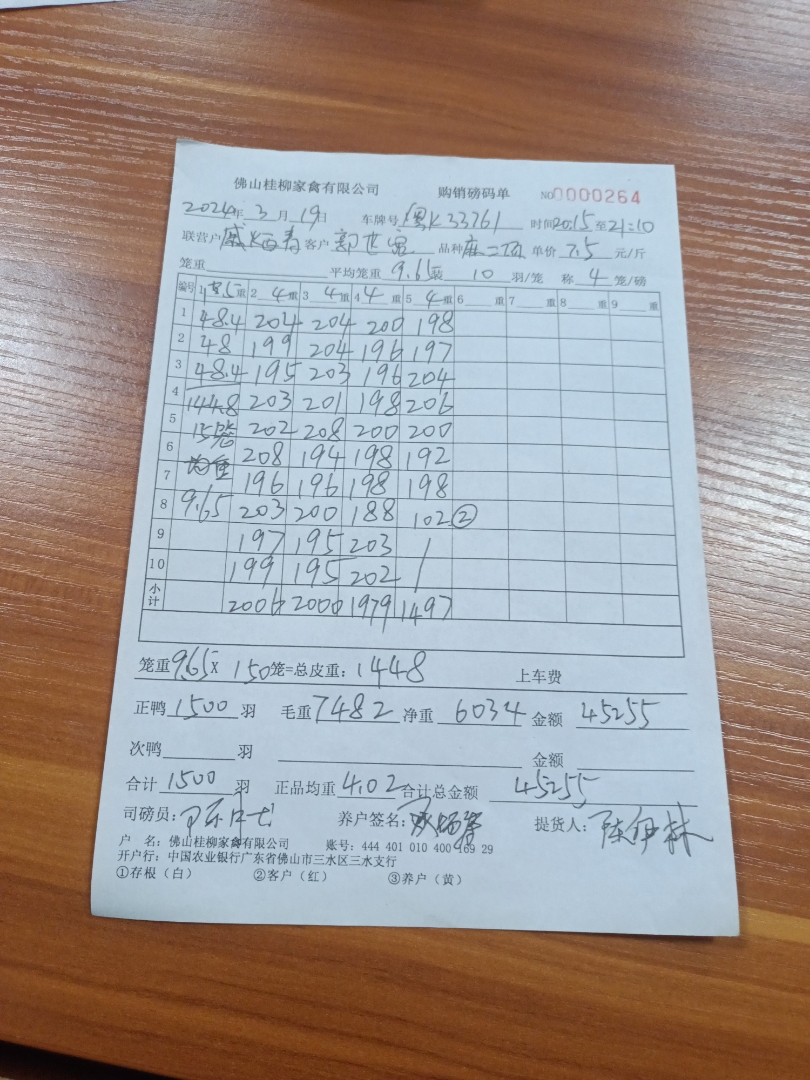 佛山桂柳家禽有限公司 购销磅码单 NO 0000264
2024年 3月 19日 车牌号 粤K33761 时间 20:15 至 21:10
联营户 客户 郭世 品种 麻二 单价 7.5 元/斤
笼重 平均笼重 9.65 装 10 羽/笼 称 4 笼/磅
编号 1 5重 2 4重 3 4重 4 4重 5 4重 6 重 7 重 8 重 9 重
1 48.4 204 204 200 198
2 48 199 204 196 197
3 48.4 195 203 196 204
4 144.8 203 201 198 206
5 15笼 202 208 200 200
6 均重 208 194 198 192
7 196 196 198 198
8 9.65 203 200 188 102②
9 197 195 203 /
10 199 195 202 /
小计 2006 2000 1979 1497
笼重 9.65 X 150 笼=总皮重: 1448 上车费
正鸭 1500 羽 毛重 7482 净重 6034 金额 45255
次鸭 羽 金额
合计 1500 羽 正品均重 4.02 合计总金额 45255
司磅员: 养户签名: 提货人: 陈伊林
户 名: 佛山桂柳家禽有限公司 账号: 444 401 010 400 169 29
开户行: 中国农业银行广东省佛山市三水区三水支行
①存根(白) ②客户(红) ③养户(黄)